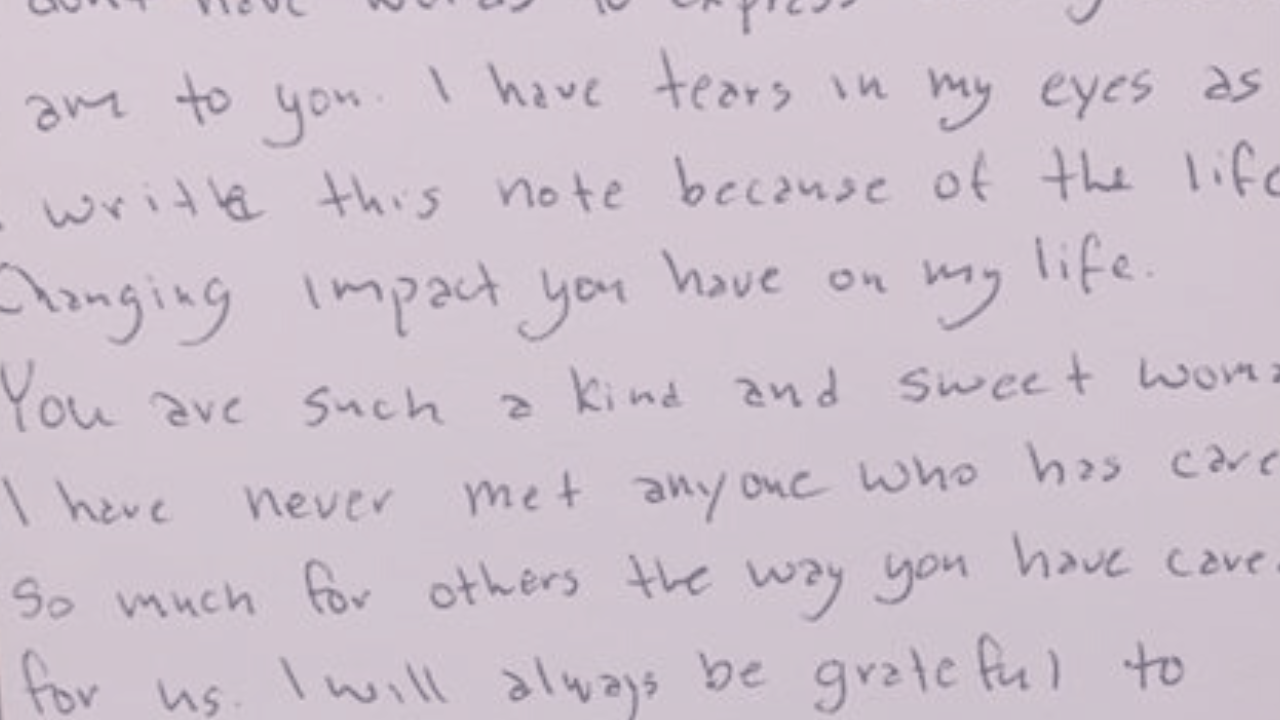 don't have words to express
am to you. I have tears in my eyes as
write this note because of the life
Changing impact you have on my life.
You are such a kind and sweet woma
I have never met anyone who has care
So much for others the way you have care
for us. I will always be grateful to